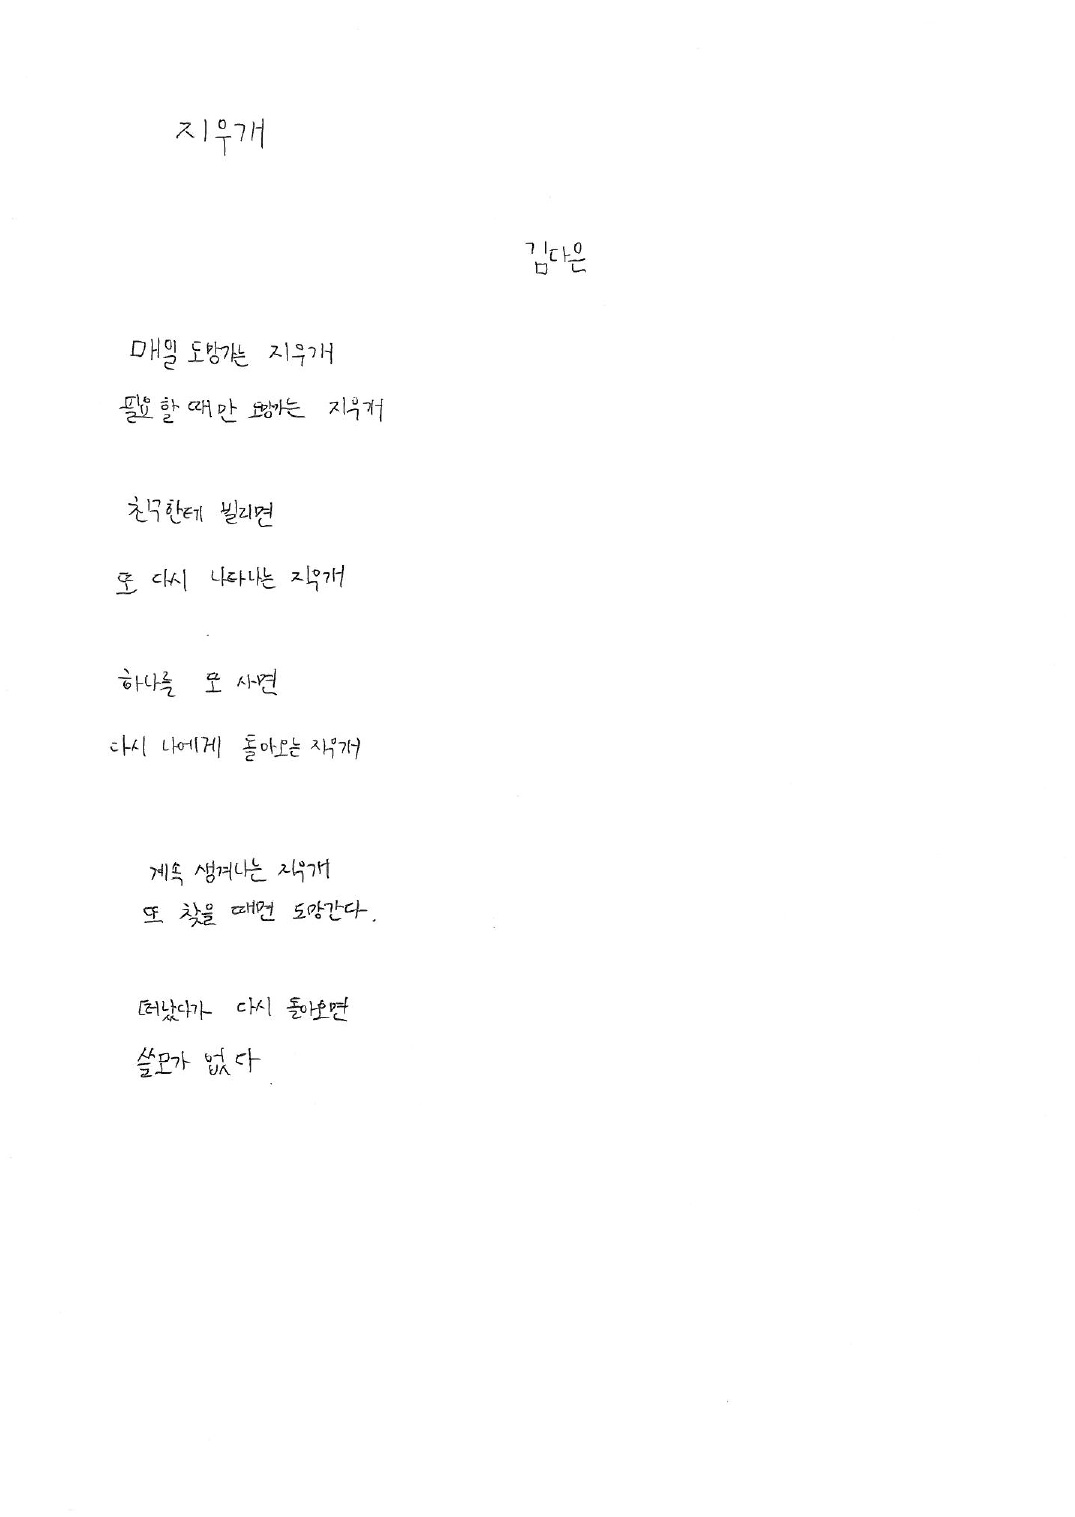 지우개
김다은
매일 도망가는 지우개
필요할 때만 도망가는 지우개
친구한테 빌리면
또 다시 나타나는 지우개
하나를 또 사면
다시 나에게 돌아오는 지우개
계속 생겨나는 지우개
또 찾을 때면 도망간다.
떠났다가 다시 돌아오면
쓸모가 없다